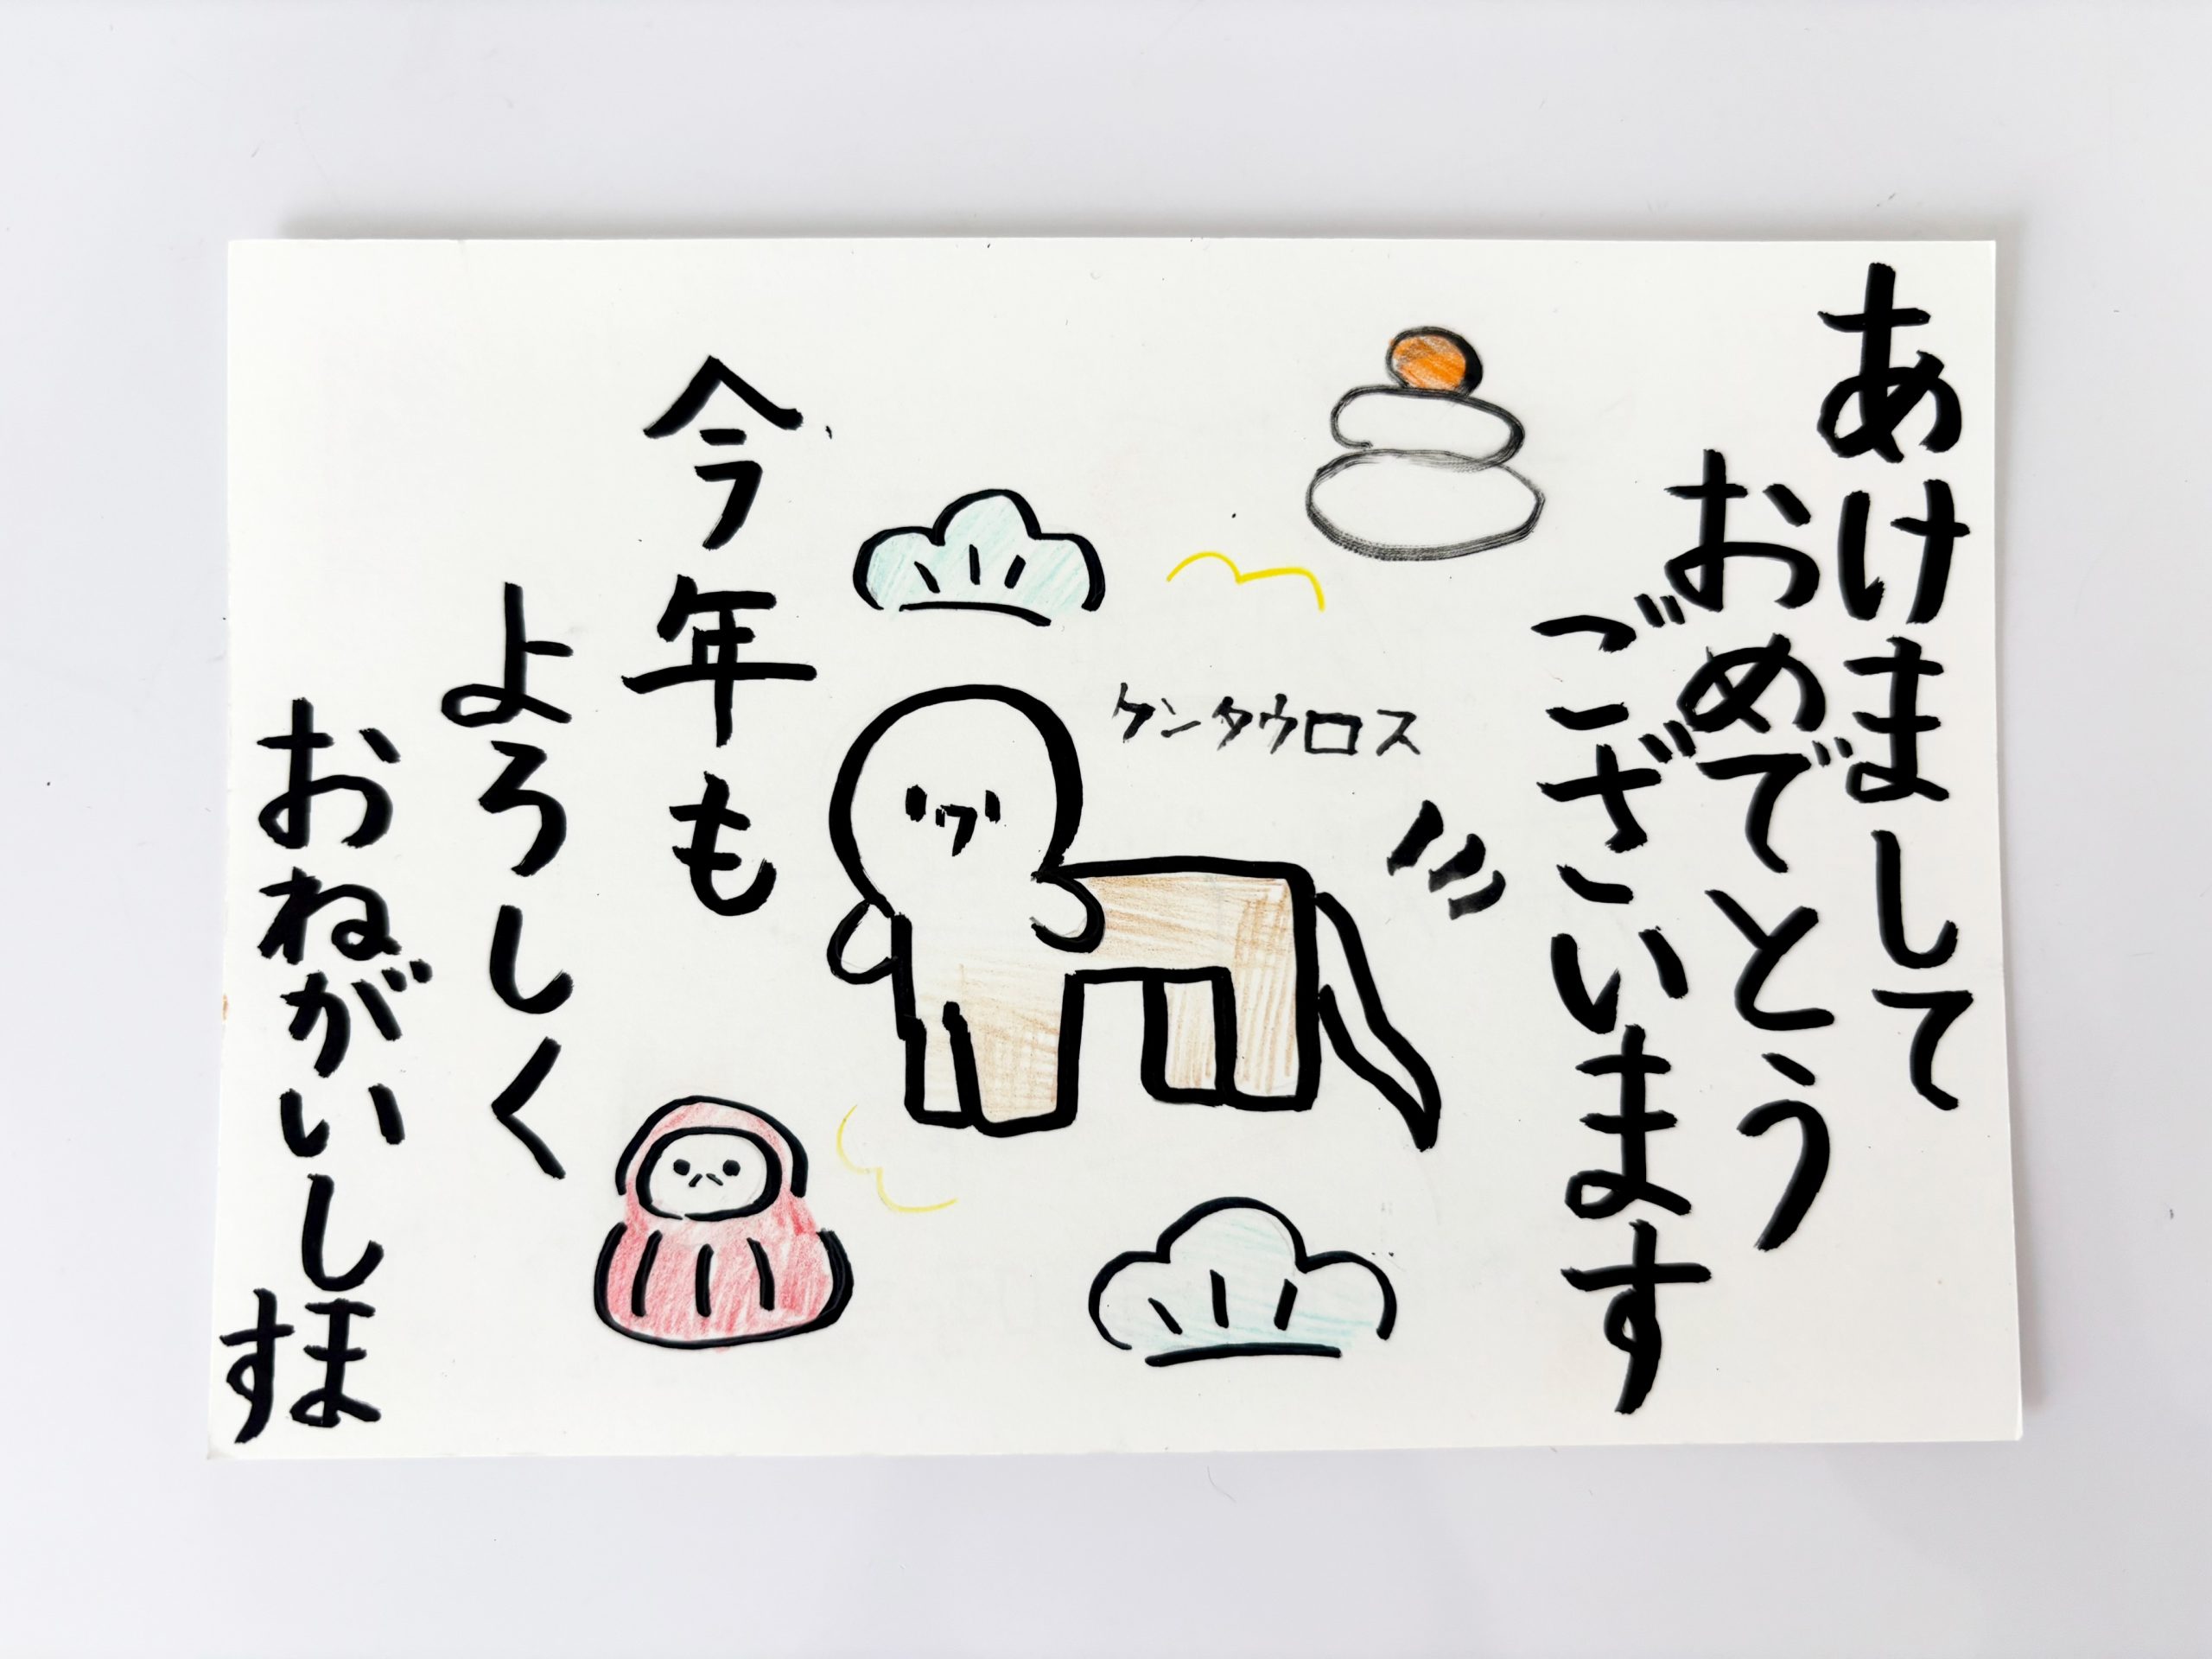 あけまして
おめでとう
ございます
ケンタウロス
今年も
よろしく
おねがいします